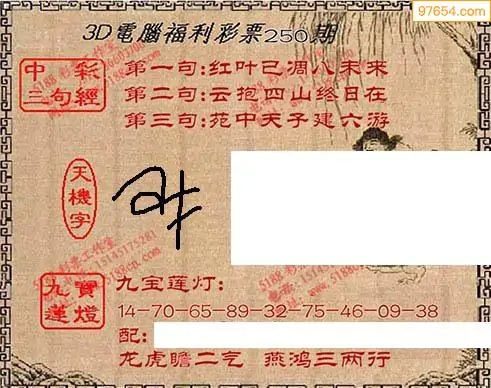 97654.com
3D電腦福利彩票250期
中彩
三句經
第一句:红叶已凋八未来
第二句:云抱四山终日在
第三句:苑中天子建六游
天機字
九寶
蓮燈
九宝莲灯:
14-70-65-89-32-75-46-09-38
配:
龙虎瞻二气 燕鸿三两行